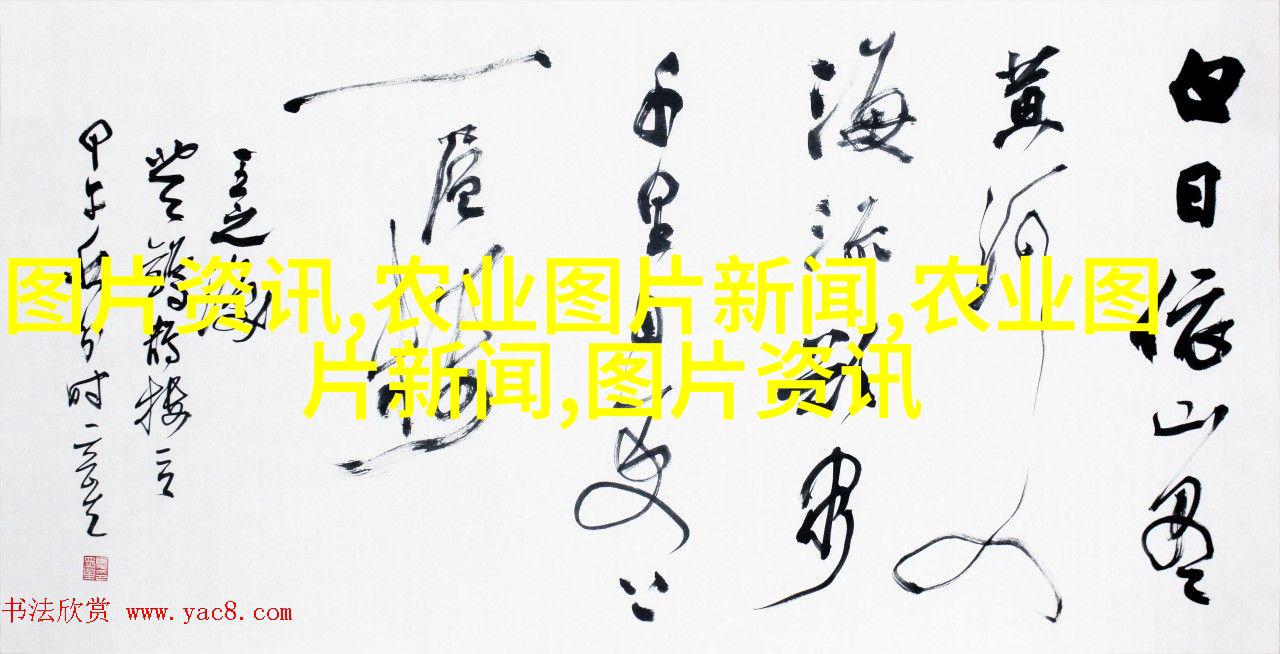 白日依山盡
黄河入
海流欲窮
千里目更上
一層樓
王之涣
甲午秋分时
图片资讯,农业图片新闻,农业图
片新闻,图片资讯
书法欣赏 www.yac8.com